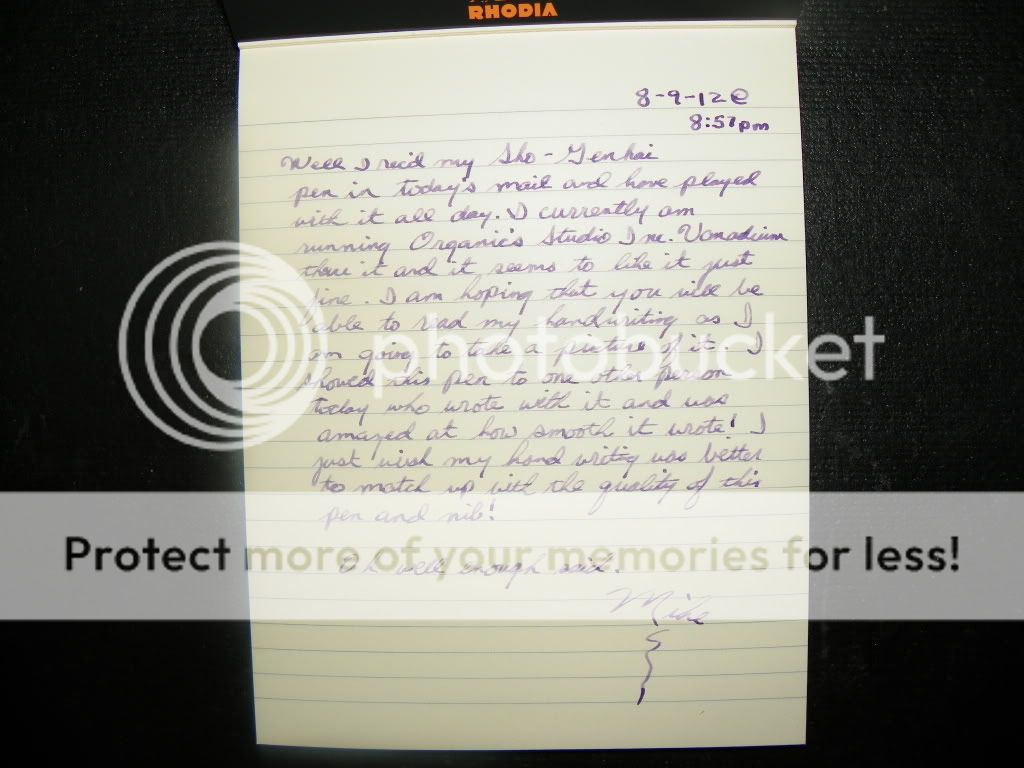 RHODIA
8-9-12 @
8:57pm
Well I rec'd my Sho-Genkai
pen in today's mail and have played
with it all day. I currently am
running Organic's Studio Inc. Vanadium
threw it and it seems to like it just
fine. I am hoping that you will be
able to read my handwriting as I
am going to take a picture of it. I
showed this pen to one other person
today who wrote with it and was
amazed at how smooth it wrote! I
just wish my hand writing was better
to match up with the quality of this
pen and nib!
Oh well enough said.
Mike
photobucket
Protect more of your memories for less!